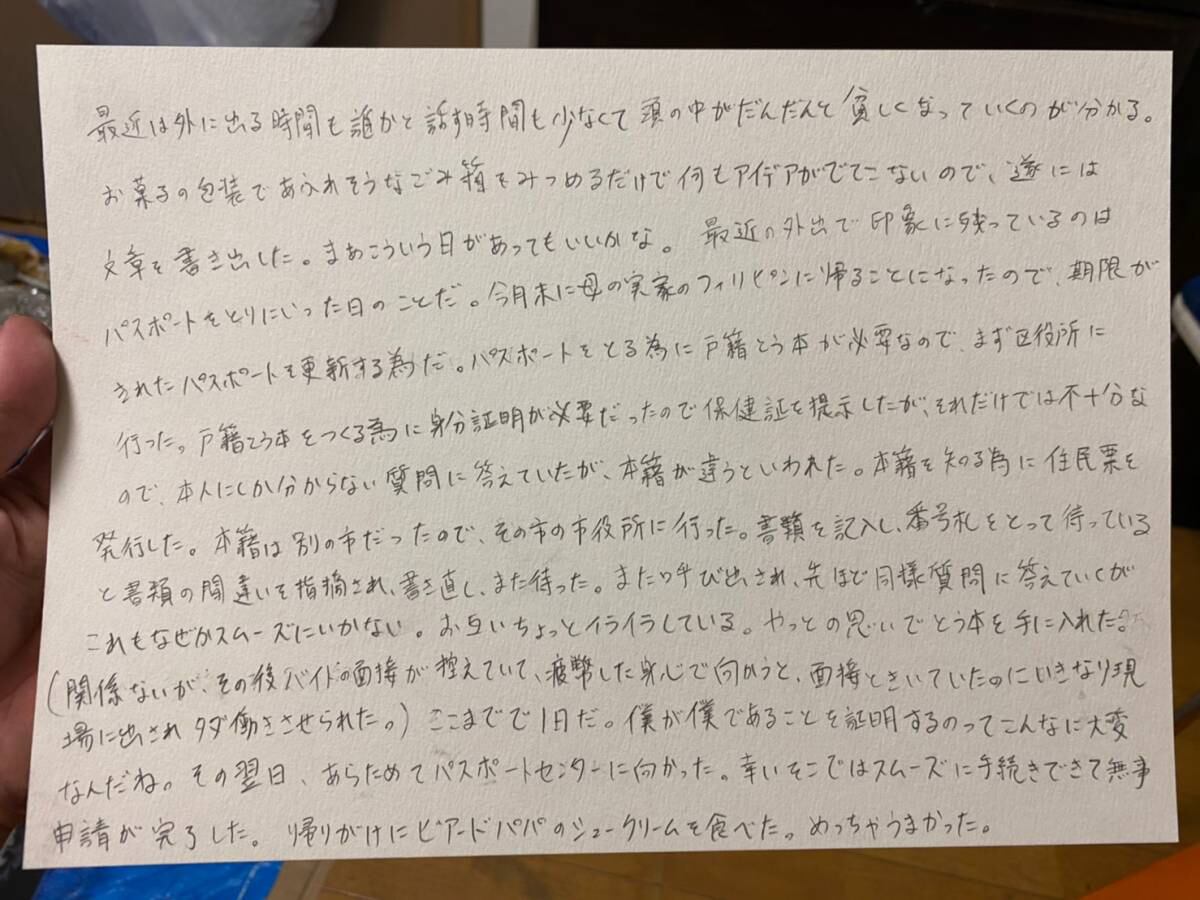 最近は外に出る時間も誰かと話す時間も少なくて頭の中がだんだんと貧しくなっていくのが分かる。
お菓子の包装であふれそうなごみ箱をみつめるだけで何もアイデアがでてこないので、遂には
文章を書き出した。まあこういう日があってもいいかな。 最近の外出で印象に残っているのは
パスポートをとりにいった日のことだ。今月末に母の実家のフィリピンに帰ることになったので、期限が
きれたパスポートを更新する為だ。パスポートをとる為に戸籍とう本が必要なので、まず区役所に
行った。戸籍とう本をつくる為に身分証明が必要だったので保健証を提示したが、それだけでは不十分な
ので、本人にしか分からない質問に答えていたが、本籍が違うといわれた。本籍を知る為に住民票を
発行した。本籍は別の市だったので、その市の市役所に行った。書類を記入し、番号札をとって待っている
と書類の間違いを指摘され、書き直し、また待った。また呼び出され、先ほど同様質問に答えていくが
これもなぜかスムーズにいかない。お互いちょっとイライラしている。やっとの思いでとう本を手に入れた。
(関係ないが、その後バイトの面接が控えていて、疲弊した身心で向かうと、面接ときいていたのにいきなり現
場に出されタダ働きさせられた。)ここまでで1日だ。僕が僕であることを証明するのってこんなに大変
なんだね。その翌日、あらためてパスポートセンターに向かった。幸いそこではスムーズに手続きできて無事
申請が完了した。 帰りがけにビアードパパのシュークリームを食べた。めっちゃうまかった。